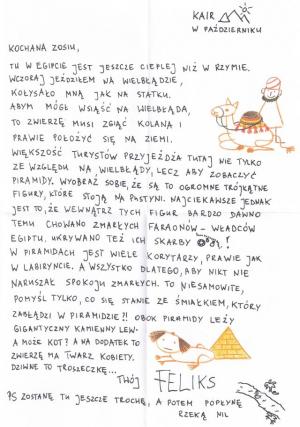 KAIR
W PAŹDZIERNIKU
KOCHANA ZOSIU,
TU W EGIPCIE JEST JESZCZE CIEPLEJ NIŻ W RZYMIE.
WCZORAJ JEŹDZIŁEM NA WIELBŁĄDZIE,
KOŁYSAŁO MNĄ JAK NA STATKU.
ABYM MÓGŁ WSIĄŚĆ NA WIELBŁĄDA,
TO ZWIERZĘ MUSI ZGIĄĆ KOLANA I
PRAWIE POŁOŻYĆ SIĘ NA ZIEMI.
WIĘKSZOŚĆ TURYSTÓW PRZYJEŻDŻA TUTAJ NIE TYLKO
ZE WZGLĘDU NA WIELBŁĄDY, LECZ ABY ZOBACZYĆ
PIRAMIDY. WYOBRAŹ SOBIE, ŻE SĄ TO OGROMNE TRÓJKĄTNE
FIGURY, KTÓRE STOJĄ NA PUSTYNI. NAJCIEKAWSZE JEDNAK
JEST TO, ŻE WEWNĄTRZ TYCH FIGUR BARDZO DAWNO
TEMU CHOWANO ZMARŁYCH FARAONÓW – WŁADCÓW
EGIPTU. UKRYWANO TEŻ ICH SKARBY !
W PIRAMIDACH JEST WIELE KORYTARZY, PRAWIE JAK
W LABIRYNCIE. A WSZYSTKO DLATEGO, ABY NIKT NIE
NARUSZAŁ SPOKOJU ZMARŁYCH. TO NIESAMOWITE,
POMYŚL TYLKO, CO SIĘ STANIE ZE ŚMIAŁKIEM, KTÓRY
ZABŁĄDZI W PIRAMIDZIE?! OBOK PIRAMIDY LEŻY
GIGANTYCZNY KAMIENNY LEW.
A MOŻE KOT? A NA DODATEK TO
ZWIERZĘ MA TWARZ KOBIETY.
DZIWNE TO TROSZECZKĘ...
TWÓJ
FELIKS
PS ZOSTANĘ TU JESZCZE TROCHĘ, A POTEM POPŁYNĘ
RZEKĄ NIL